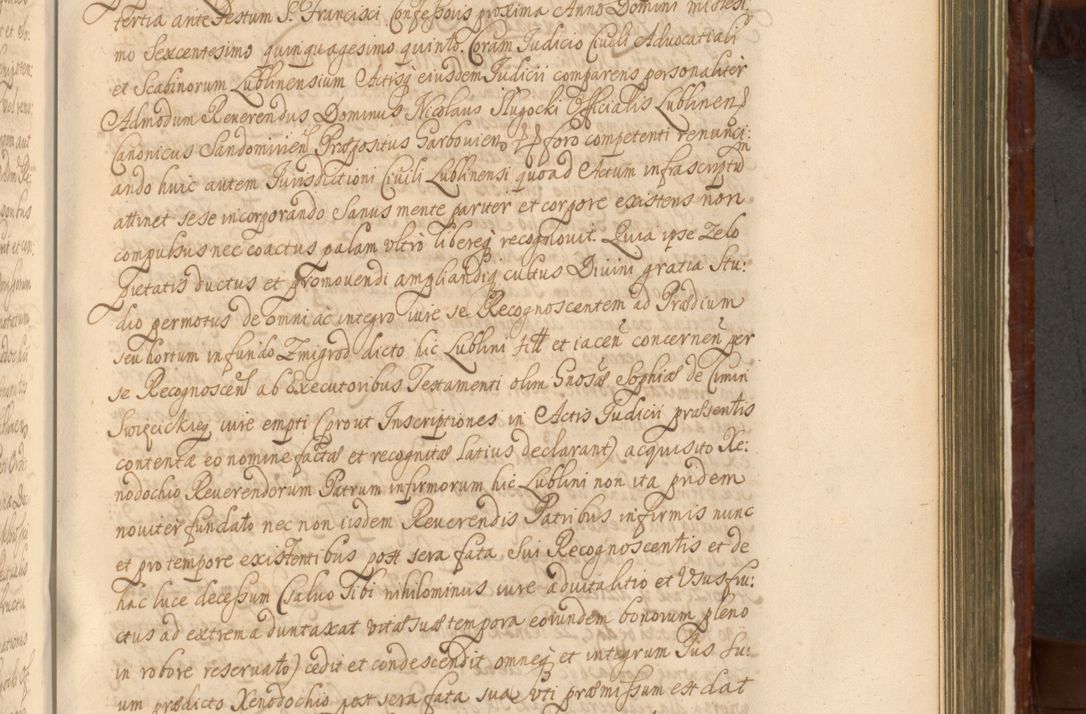 tertia ante Festum S. Francisci Confessoris proxima Anno Domini millesi:
mo Sexcentesimo quinquagesimo quinto. Coram Iudicio Civili Advocatiali
et Scabinorum Lublinensium Actisq eiusdem Iudicii comparens personaliter
Admodum Reverendus Dominus Nicolaus Slugocki Officialis Lublinen
Canonicus Sandomirien Præpositus Garbovien foro competenti renunci:
ando huic autem Iurisdictioni Civili Lublinensi quoad Actum infrascriptum
attinet sese incorporando Sanus mente pariter et corpore existens non
compulsus nec coactus palam ultro libereq recognovit. Quia ipse Zelo
Pietatis ductus et promovendi ampliandiq cultus Divini gratia Stu:
dio permotus de omni ac integro iure se Recognoscentem ad Prædium
seu hortum in fundo Zmigrod dicto hic Lublini sitt et iacen concernen per
se Recognoscen ab Executoribus Testamenti olim Gnosæ Sophiæ de Cimin
Swięcickiey iure empti (prout Inscriptiones in Actis Iudicii præsentis
contentæ eo nomine factæ et recognitæ latius declarant) acquisito Xe:
nodochio Reverendorum Patrum infirmorum hic Lublini non ita pridem
noviter fundato nec non iisdem Reverendis Patribus infirmis nunc
et pro tempore existentibus post sera fata Sui Recognoscentis et de
hac luce decessum (salvo Tibi nihilominus iure advitalitio et Ususfru:
ctus ad extrema duntaxat vitæ suæ tempora eorundem bonorum pleno
in robore reservato) cedit et condescendit omneq et integrum Ius Su:
um prædicto Xenodochio post sera fata sua uti præmissum est dat